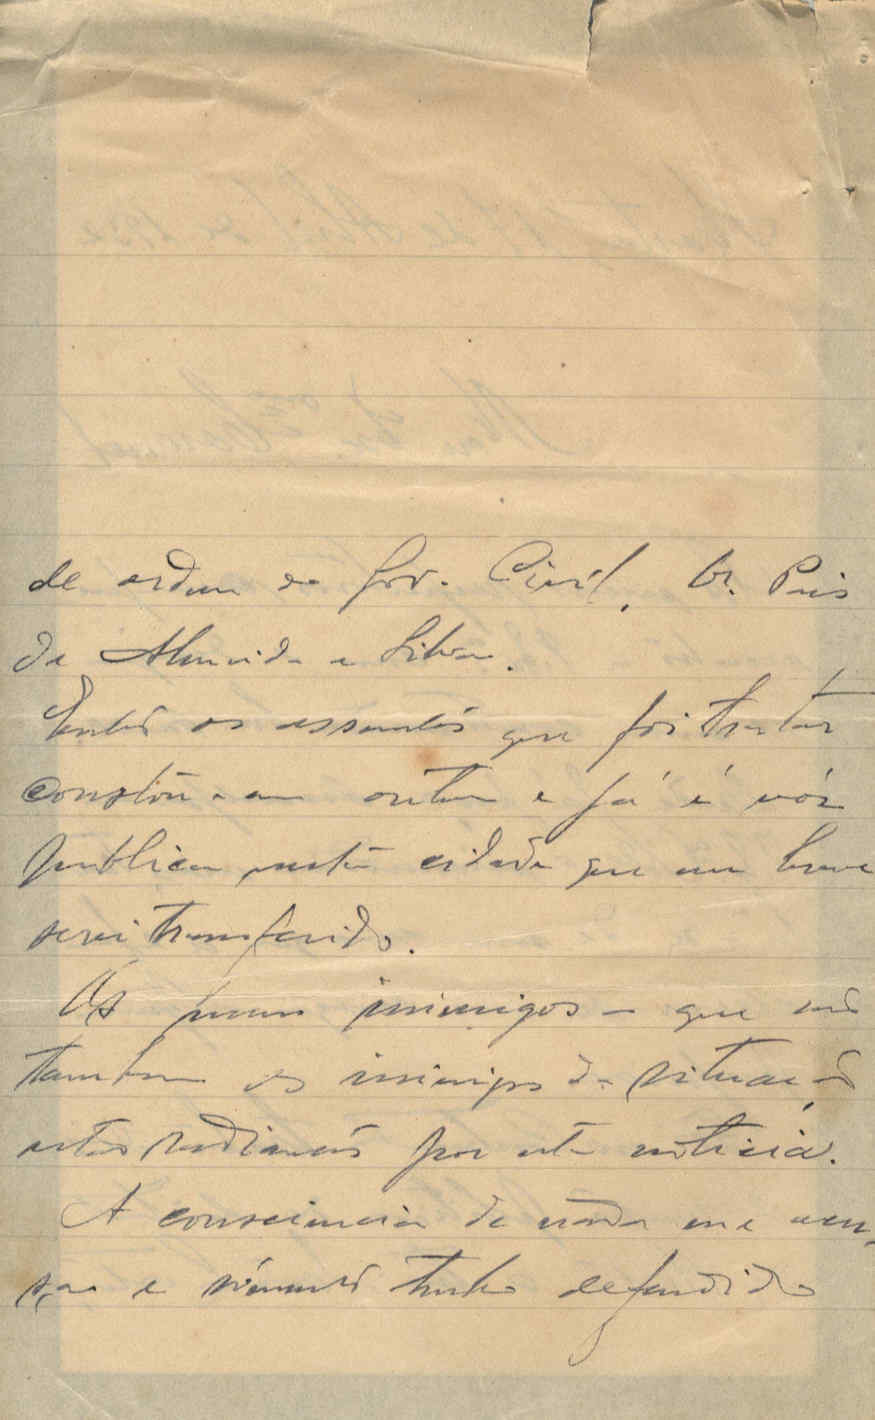 de ordem do Gov. Civil, Dr. Pais
de Almeida e Silva.
Entre os assuntos que foi tratar
contou-me outro e já é vóz
publica nesta cidade que em breve
serei transferido.
Os meus inimigos - que são
tambem os inimigos da situação
estão radiantes por esta noticia.
A consciencia de nada me acu-
sa e sómente tenho defendido